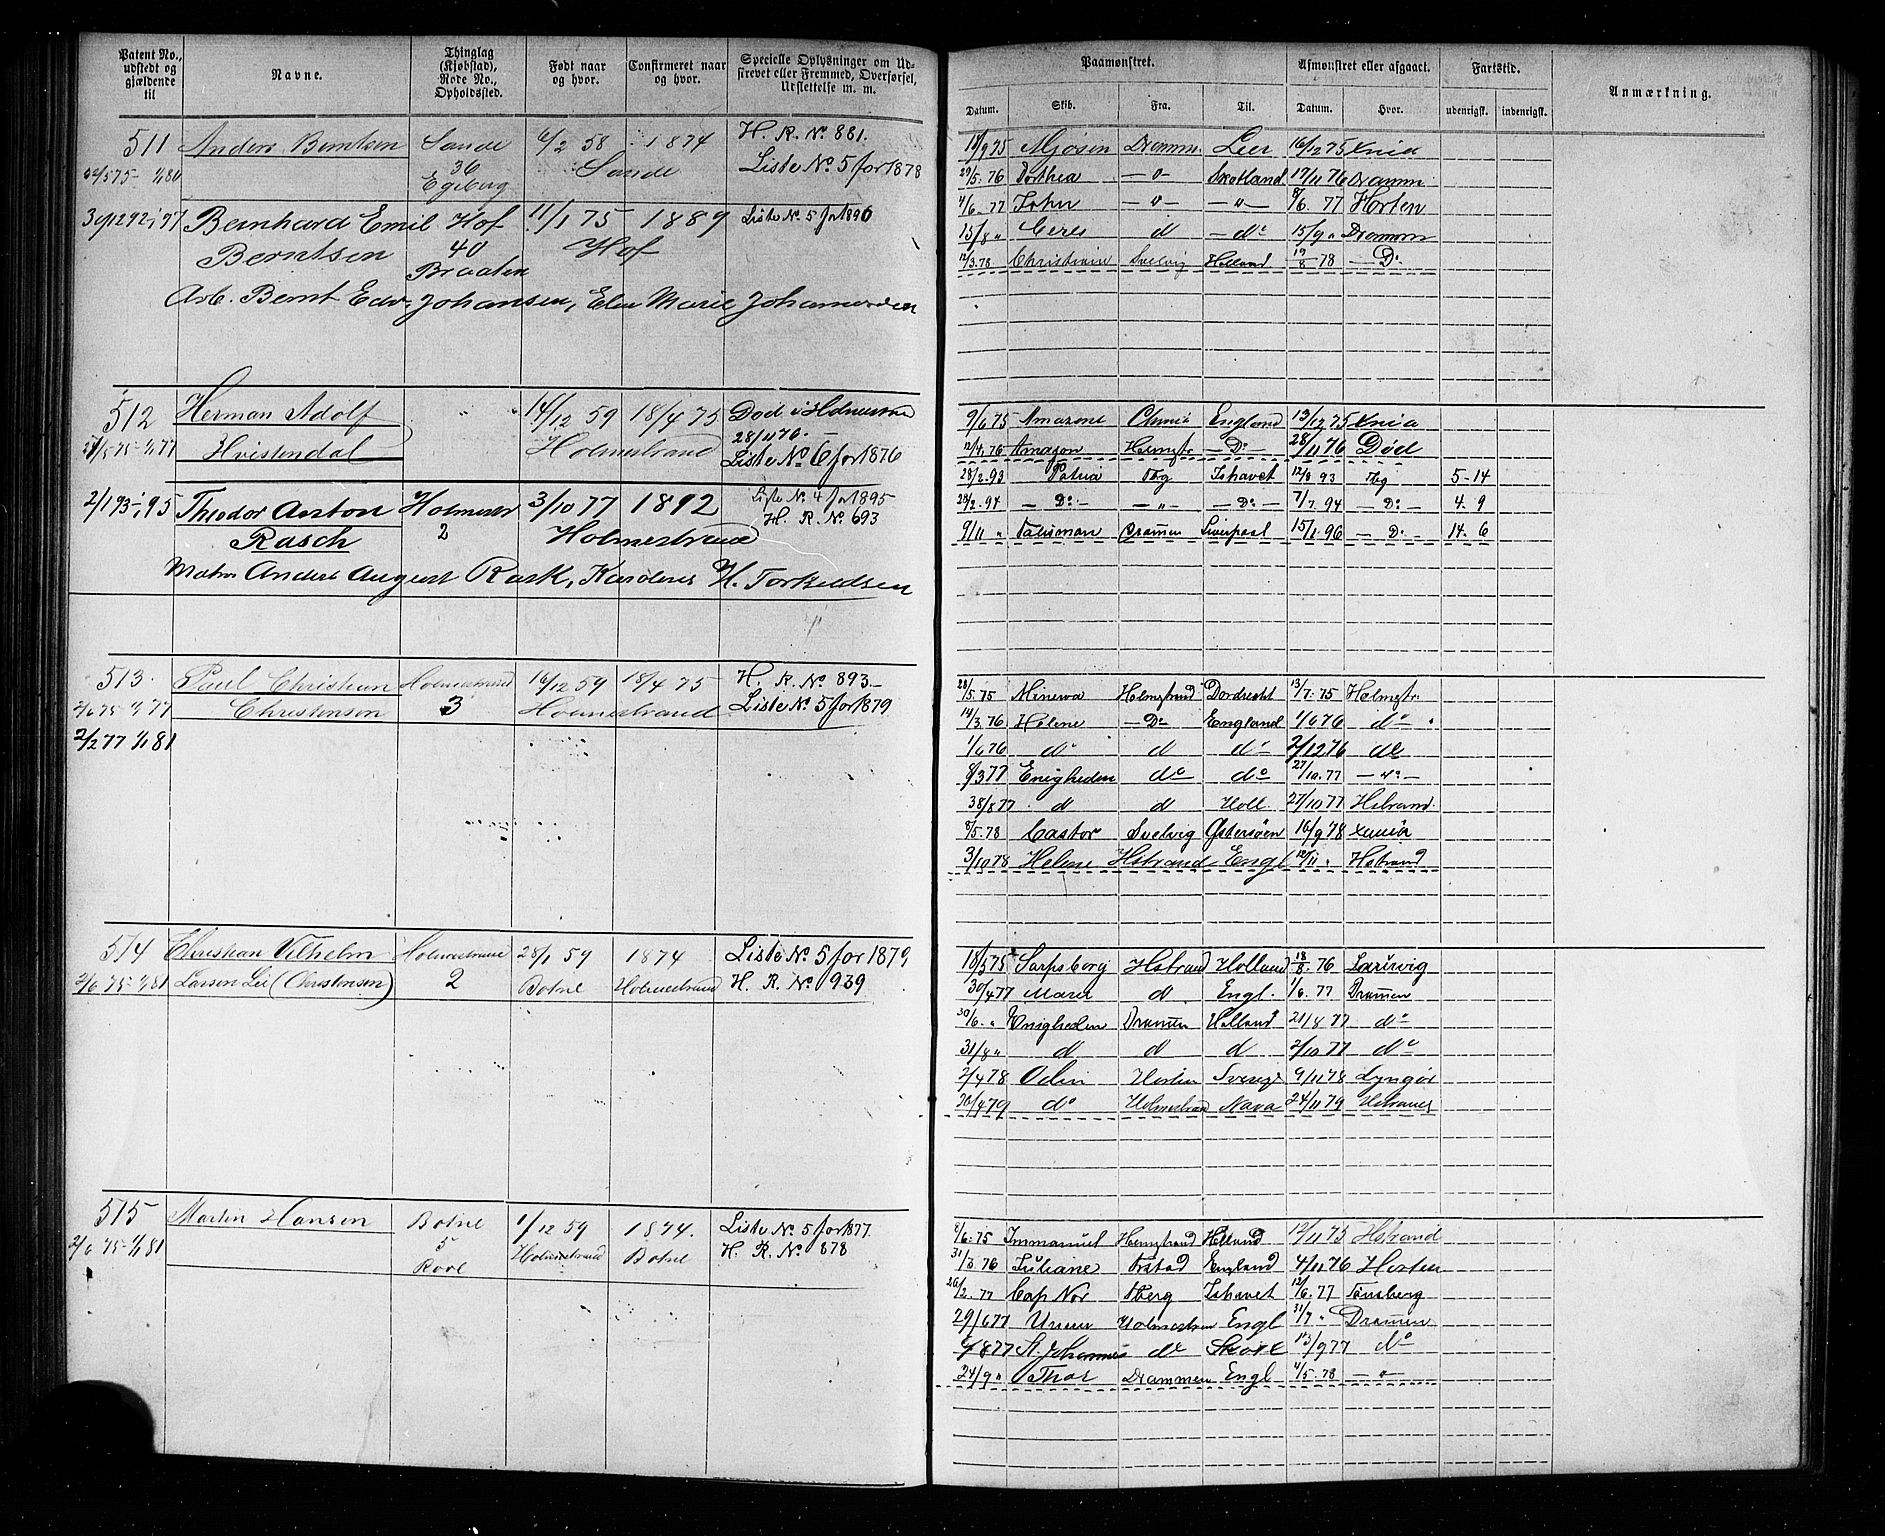 Patent No., udstedt og gjældende til
Navne.
Thinglag (Kjøbstad), Rode No., Opholdssted.
Født naar og hvor.
Confirmeret naar og hvor.
Specielle Oplysninger om Udskrevet eller Fremmed, Overførsel, Udslettelse m. m.
Paamønstret.
Datum. Skib. Fra. Til.
Afmønstret eller afgaaet.
Datum. Hvor.
Fartstid.
udenrigsk. indenrigsk.
Anmærkning.
511 Anders Berntsen Sande 6/2 58 1874 H. R. No 881.
36 Sande Liste No 5 for 1878
Egeberg
Bernhard Emil Hof 11/1 75 1889 Liste No 5 for 1896
Berntsen 40 Hof
Braaten
Arb. Bernt Edv. Johansen, Elen Marie
512 Herman Adolf 14/12 59 18/4 75 Død i
Hvistendal Holmestrand 28/11 76.
Liste No 6 for 1876
2/1 93 - 95 Theodor Anton 3/10 77 1892 Liste No 4 for 1895
Rasch 2 Holmestrand H. R. No 693
Anders August Rask, H. Torkildsen
513 Paul Christian Holmestrand 16/12 59 18/4 75 H. R. No 893
Christensen 3 Holmestrand Liste No 5 for 1879
2/2 77 1/1 81
514 Christian Vilhelm Holmestrand 28/1 59 1874 Liste No 5 for 1879
2/6 75 - 1/1 81 Larsen Lei (Christensen) 2 Botne Holmestrand H. R. No 939
515 Martin Hansen Botne 1/12 59 1874. Liste No 5 for 1877.
2/6 75 - 1/1 81 5 Holmestrand Botne H. R. No 878
Rove
18/9 75 Mjøsen Dramm. Leer 16/12 75 Xnia
29/5. 76 Dorthea — " — Skotland 17/11 76 Dramm
4/6. 77 John — " — — " — 8/6. 77 Horten
15/8 " Ceres d — do 15/9 " Dramm
12/3. 78 Christiane Svelvig Holland 19/8 - 78 — Do
9/6 75 England 13/12 75 Xnia
12/4. 76 Amazon Holmstr — Do — 28/11 76 Død
28/2. 93 Patria Tbg Ishavet 12/8 93 Tbg 5 - 14
28/2. 94 — Do — — " — — Do — 7/7. 94 — Do — 4. 9
9/11 " Talisman Dramen Liverpool 15/1. 96 — Do — 14. 6
28/5. 75 Minerva Holmstrand Dordrecht 13/7. 75 Holmstr.
14/3. 76 Helene — Do England 1/6 76 do
1/6 76 do d do 2/12 76 do
8/3 77 Enigheden do do 27/10. 77 — " —
d d Holl. 27/10 77 Hstrand.
8/5. 78 Castor Svelvig Østersøen 16/9 78 Xania
3/10 78 Helene Hstrand Engl 12/11 " Hstrand
18/5 75 Sarpsborg Hstrand Holland 18/8. 76 Laurvig
30/4 77 d Engl. 1/6. 77 Dramen
30/6. " Enigheden Dramen Holland 21/8 77 do
31/8 " d d d 2/10 77 do
2/4 78 Odin Horten Sverige 9/11 78 Lyngør
30/4 79 do Holmestrand 24/11 79 Hstrand
8/6. 75 Immanuel Holmstrand Holland 12/11 75 Hstrand
31/3. 76 Juliane England 4/11 76 Horten
26/2. 77 Cap Nor Tberg Ishavet 12/6. 77 Tønsberg
29/6 77 Holmestran Engl 31/7 " Dramen
8 77 St. Johannes do 13/9 77 do
24/9 " Thor Drammen Engl 4/5. 78 — " —